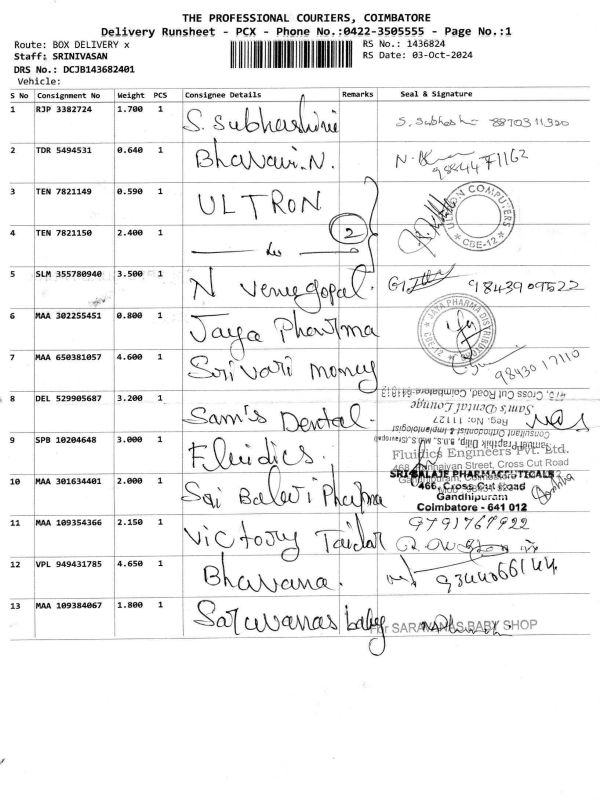 THE PROFESSIONAL COURIERS, COIMBATORE
Delivery Runsheet - PCX - Phone No.:0422-3505555 - Page No.:1
Route: BOX DELIVERY x
RS No.: 1436824
Staff: SRINIVASAN
RS Date: 03-Oct-2024
DRS No.: DCJB143682401
Vehicle:
S No Consignment No Weight PCS Consignee Details Remarks Seal & Signature
1 RJP 3382724 1.700 1 S. Subhashini 8870311320
2 TDR 5494531 0.640 1 Bhavani.N. 9844471162
3 TEN 7821149 0.590 1 ULTRON ULTRON COMPUTERS
4 TEN 7821150 2.400 1 2 CBE-12
5 SLM 355780940 3.500 1 N Venugopal. 9843909522
6 MAA 302255451 0.800 1 Jaya Pharma JAYA PHARMA DISTRIBUTORS
7 MAA 650381057 4.600 1 Srivari money 9843017110
8 DEL 529905687 3.200 1 Sam's Dental.
Cross Cut Road, Coimbatore-641012
Sam's Dental Lounge
Reg. No: 11127
Consultant Orthodontist & Implantologist
9 SPB 10204648 3.000 1 Fluidics.
Fluidics Engineers Pvt. Ltd.
Street, Cross Cut Road
10 MAA 301634401 2.000 1 Sri Balaji Pharma
SRI BALAJE PHARMACEUTICALS
466, Cross Cut Road
Gandhipuram
Coimbatore - 641 012
11 MAA 109354366 2.150 1 Victory Tailor 9791767922
12 VPL 949431785 4.650 1 Bhavana. 9344066144
13 MAA 109384067 1.800 1 Saravanas baby For SARAVANAS BABY SHOP